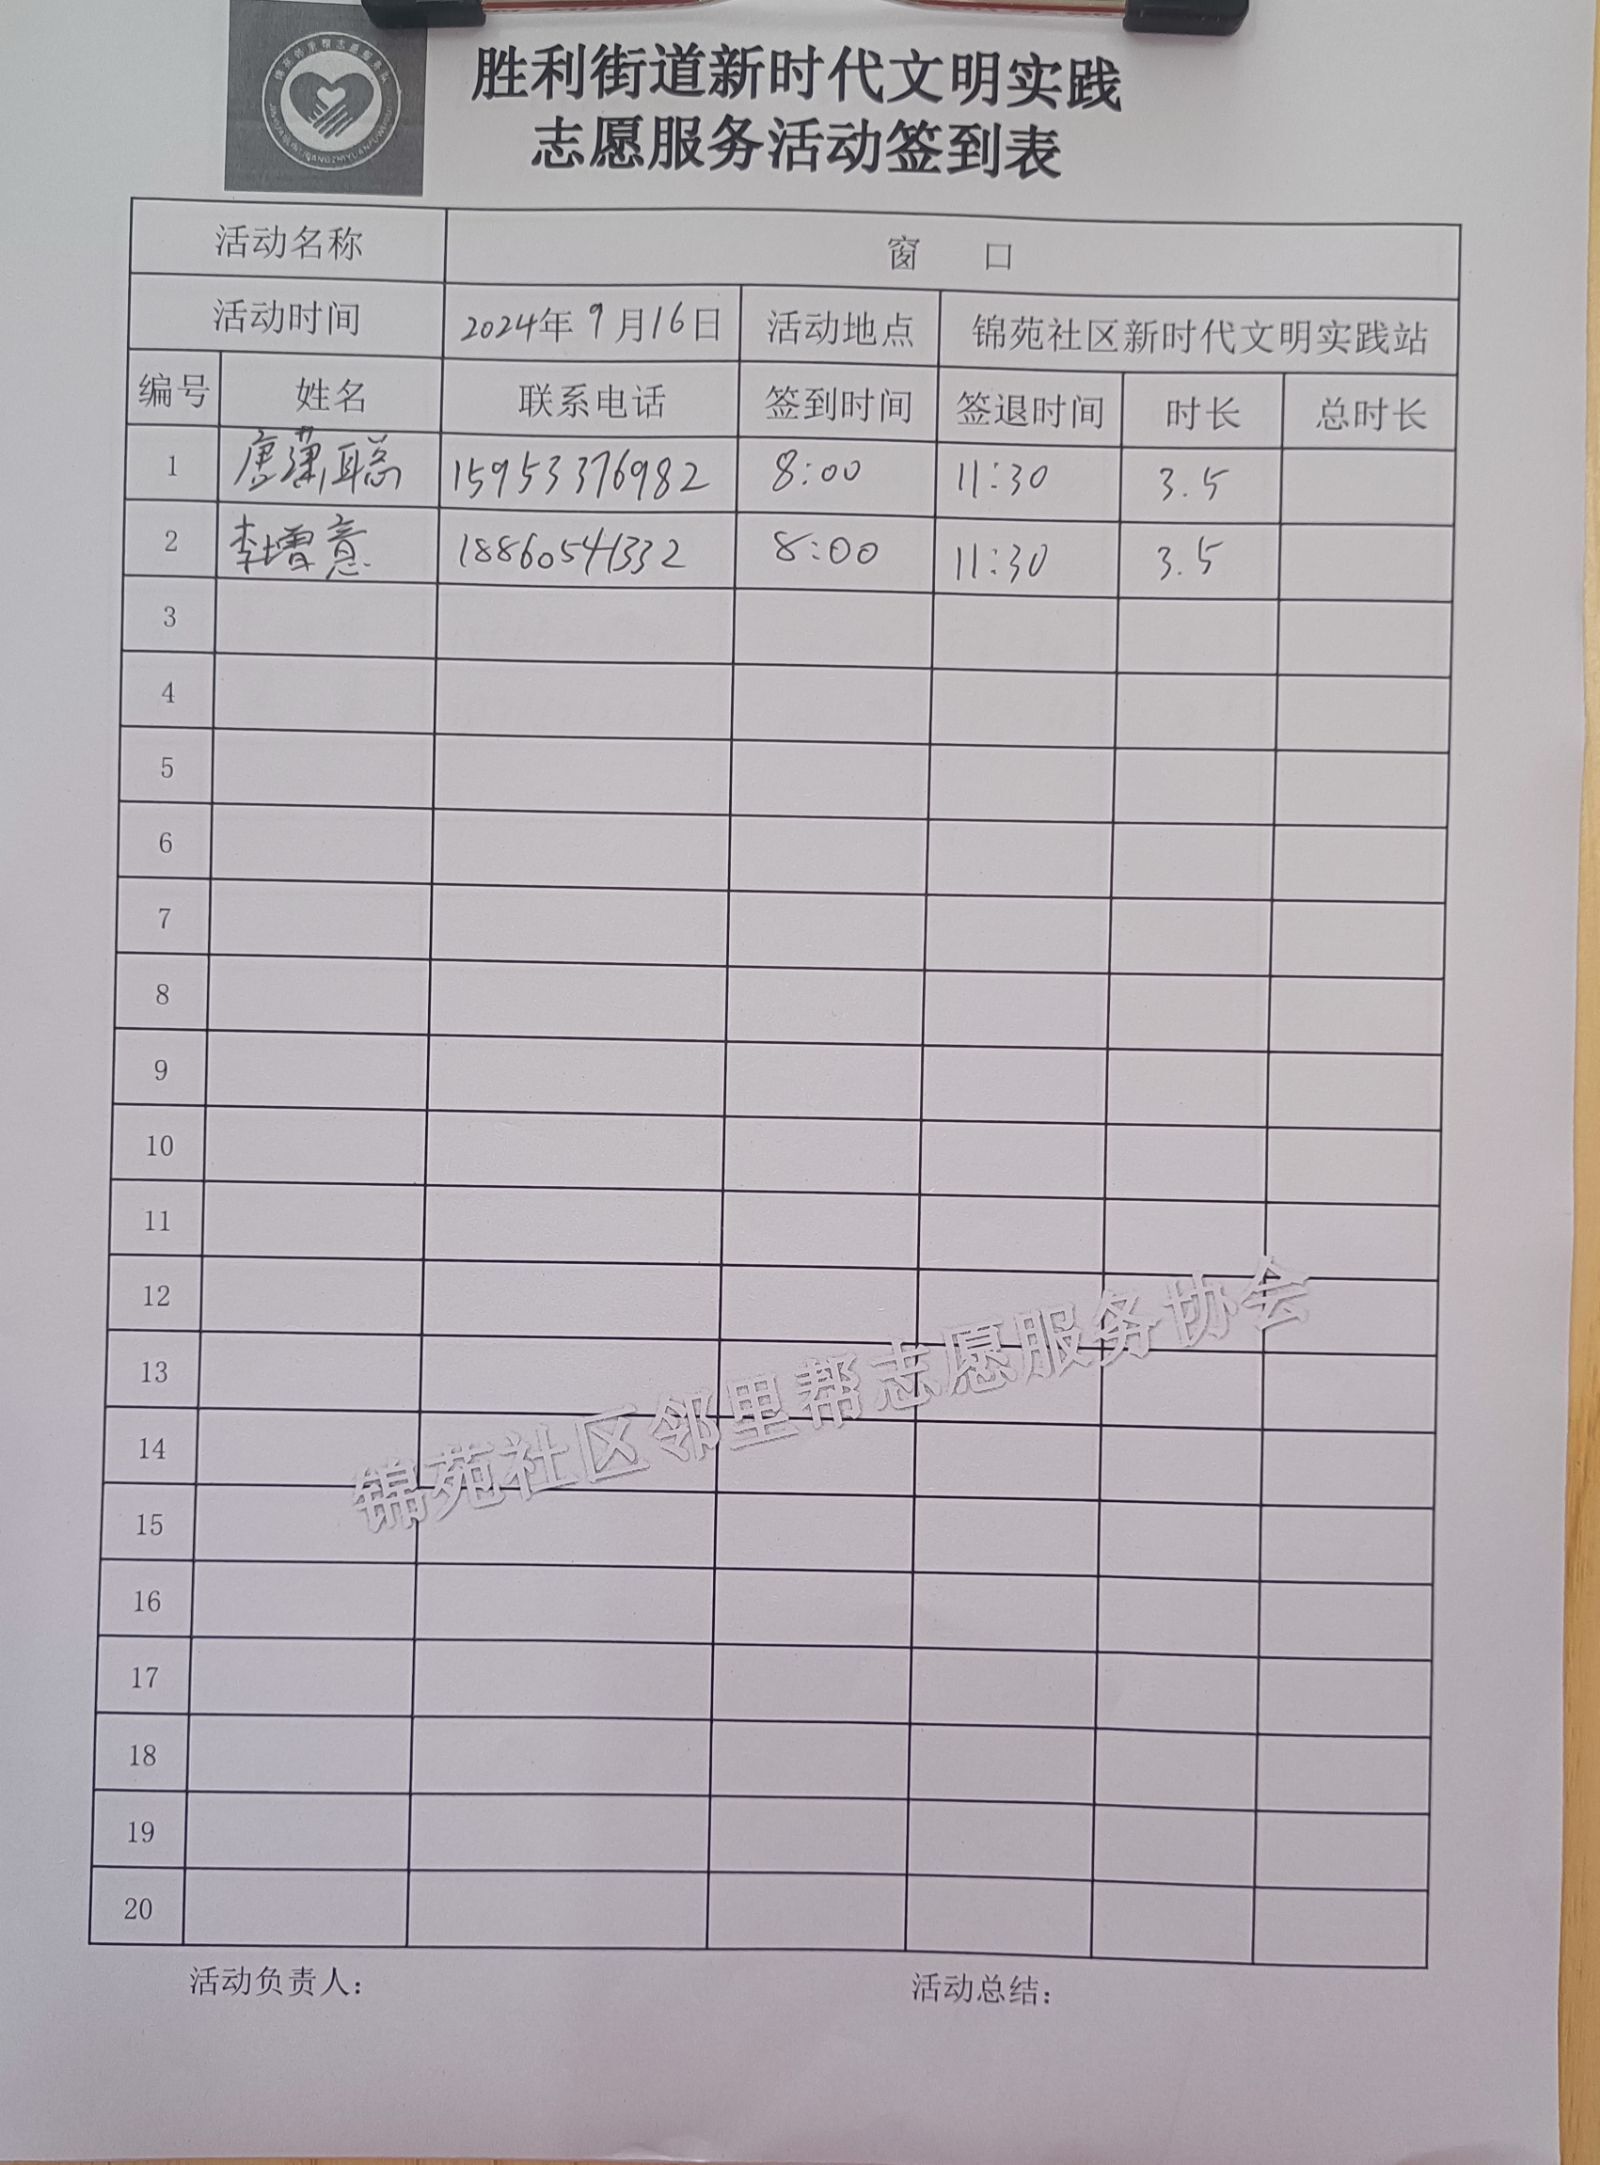 胜利街道新时代文明实践
志愿服务活动签到表
活动名称 窗 口
活动时间 2024年9月16日 活动地点 锦苑社区新时代文明实践站
编号 姓名 联系电话 签到时间 签退时间 时长 总时长
1 唐潇聪 15953376982 8:00 11:30 3.5
2 李增意 18860541332 8:00 11:30 3.5
3
4
5
6
7
8
9
10
11
12
13
14
15
16
17
18
19
20
锦苑社区邻里帮志愿服务协会
活动负责人： 活动总结：